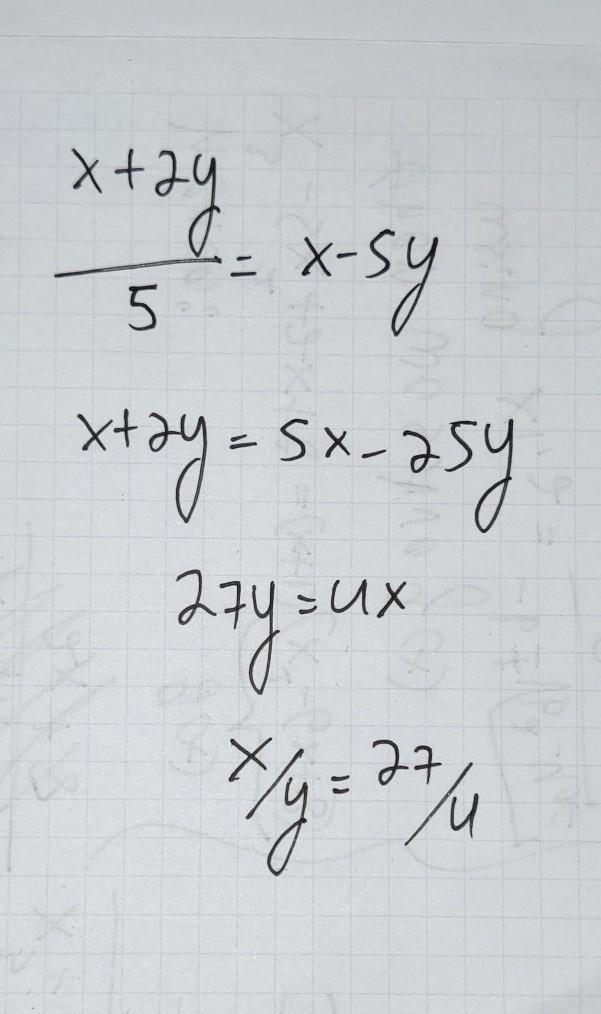 x+2y
/5 = x-5y
x+2y = 5x-25y
27y=4x
x/y = 27/4